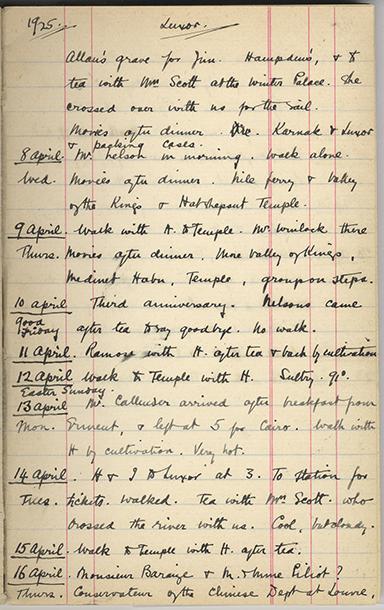 1925. Luxor.
Allan's grave for Jim. Hampden's, & to
tea with Mrs Scott at the Winter Palace. She
crossed over with us for the sail.
Movies after dinner. Karnak & Luxor
& packing cases.
8 April. Mr. Nelson in morning. Walk alone.
Wed. Movies after dinner. Nile ferry & Valley
of the Kings & Hatshepsut Temple.
9 April. Walk with H. to Temple. Mr. Winlock there
Thurs. Movies after dinner. More Valley of Kings,
Medinet Habu, Temple, group on steps.
10 April Third anniversary. Nelsons came
Good Friday after tea to say goodbye. No walk.
11 April. Ramose with H. after tea & back by cultivation
12 April Walk to Temple with H. Sultry. 91°.
Easter Sunday
13 April Mr. Callender arrived after breakfast from
Mon. Ermant, & left at 5 for Cairo. Walk with
H by cultivation. Very hot.
14 April. H & I to Luxor at 3. To Station for
Tues. tickets. Walked. Tea with Mrs. Scott. who
crossed the river with us. Cool, but cloudy.
15 April. Walk to Temple with H. after tea.
16 April. Monsieur Baraize & M. & Mme Piliot?
Thurs. Conservateur of the Chinese Dept at Louvre,